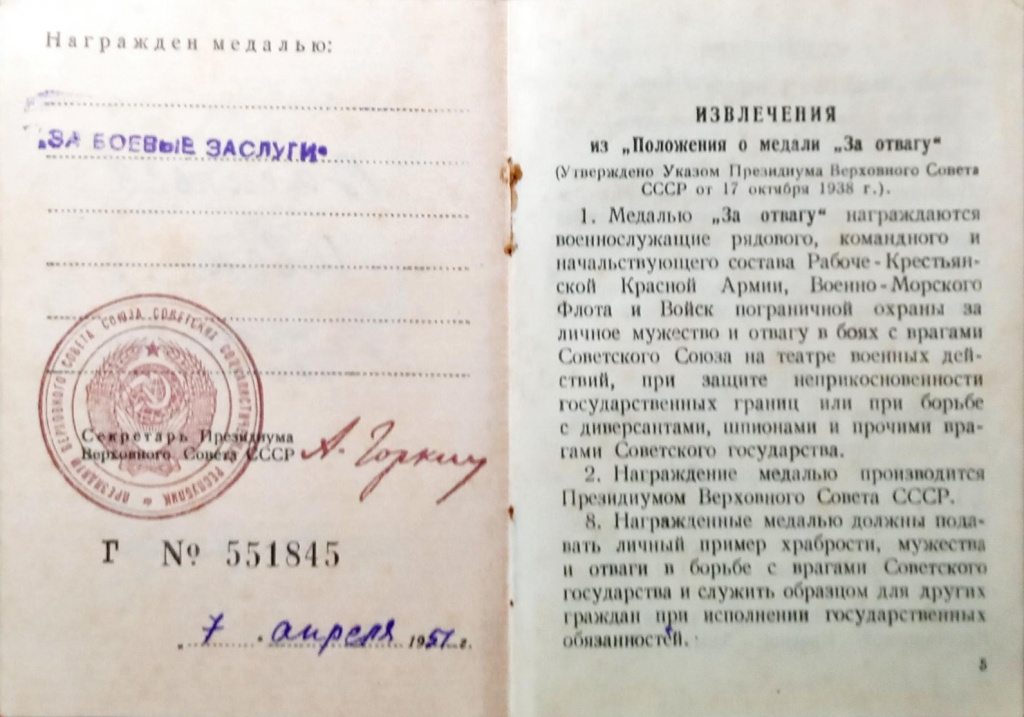 Награжден медалью:
„ЗА БОЕВЫЕ ЗАСЛУГИ“
ПРЕЗИДИУМ ВЕРХОВНОГО СОВЕТА СОЮЗА СОВЕТСКИХ СОЦИАЛИСТИЧЕСКИХ РЕСПУБЛИК
Секретарь Президиума
Верховного Совета СССР
А. Горкин
Г № 551845
„ 7 . апреля 1951 г.
ИЗВЛЕЧЕНИЯ
из „Положения о медали „За отвагу“
(Утверждено Указом Президиума Верховного Совета
СССР от 17 октября 1938 г.).
1. Медалью „За отвагу“ награждаются
военнослужащие рядового, командного и
начальствующего состава Рабоче-Крестьян-
ской Красной Армии, Военно-Морского
Флота и Войск пограничной охраны за
личное мужество и отвагу в боях с врагами
Советского Союза на театре военных дей-
ствий, при защите неприкосновенности
государственных границ или при борьбе
с диверсантами, шпионами и прочими вра-
гами Советского государства.
2. Награждение медалью производится
Президиумом Верховного Совета СССР.
8. Награжденные медалью должны пода-
вать личный пример храбрости, мужества
и отваги в борьбе с врагами Советского
государства и служить образцом для других
граждан при исполнении государственных
обязанностей.
5